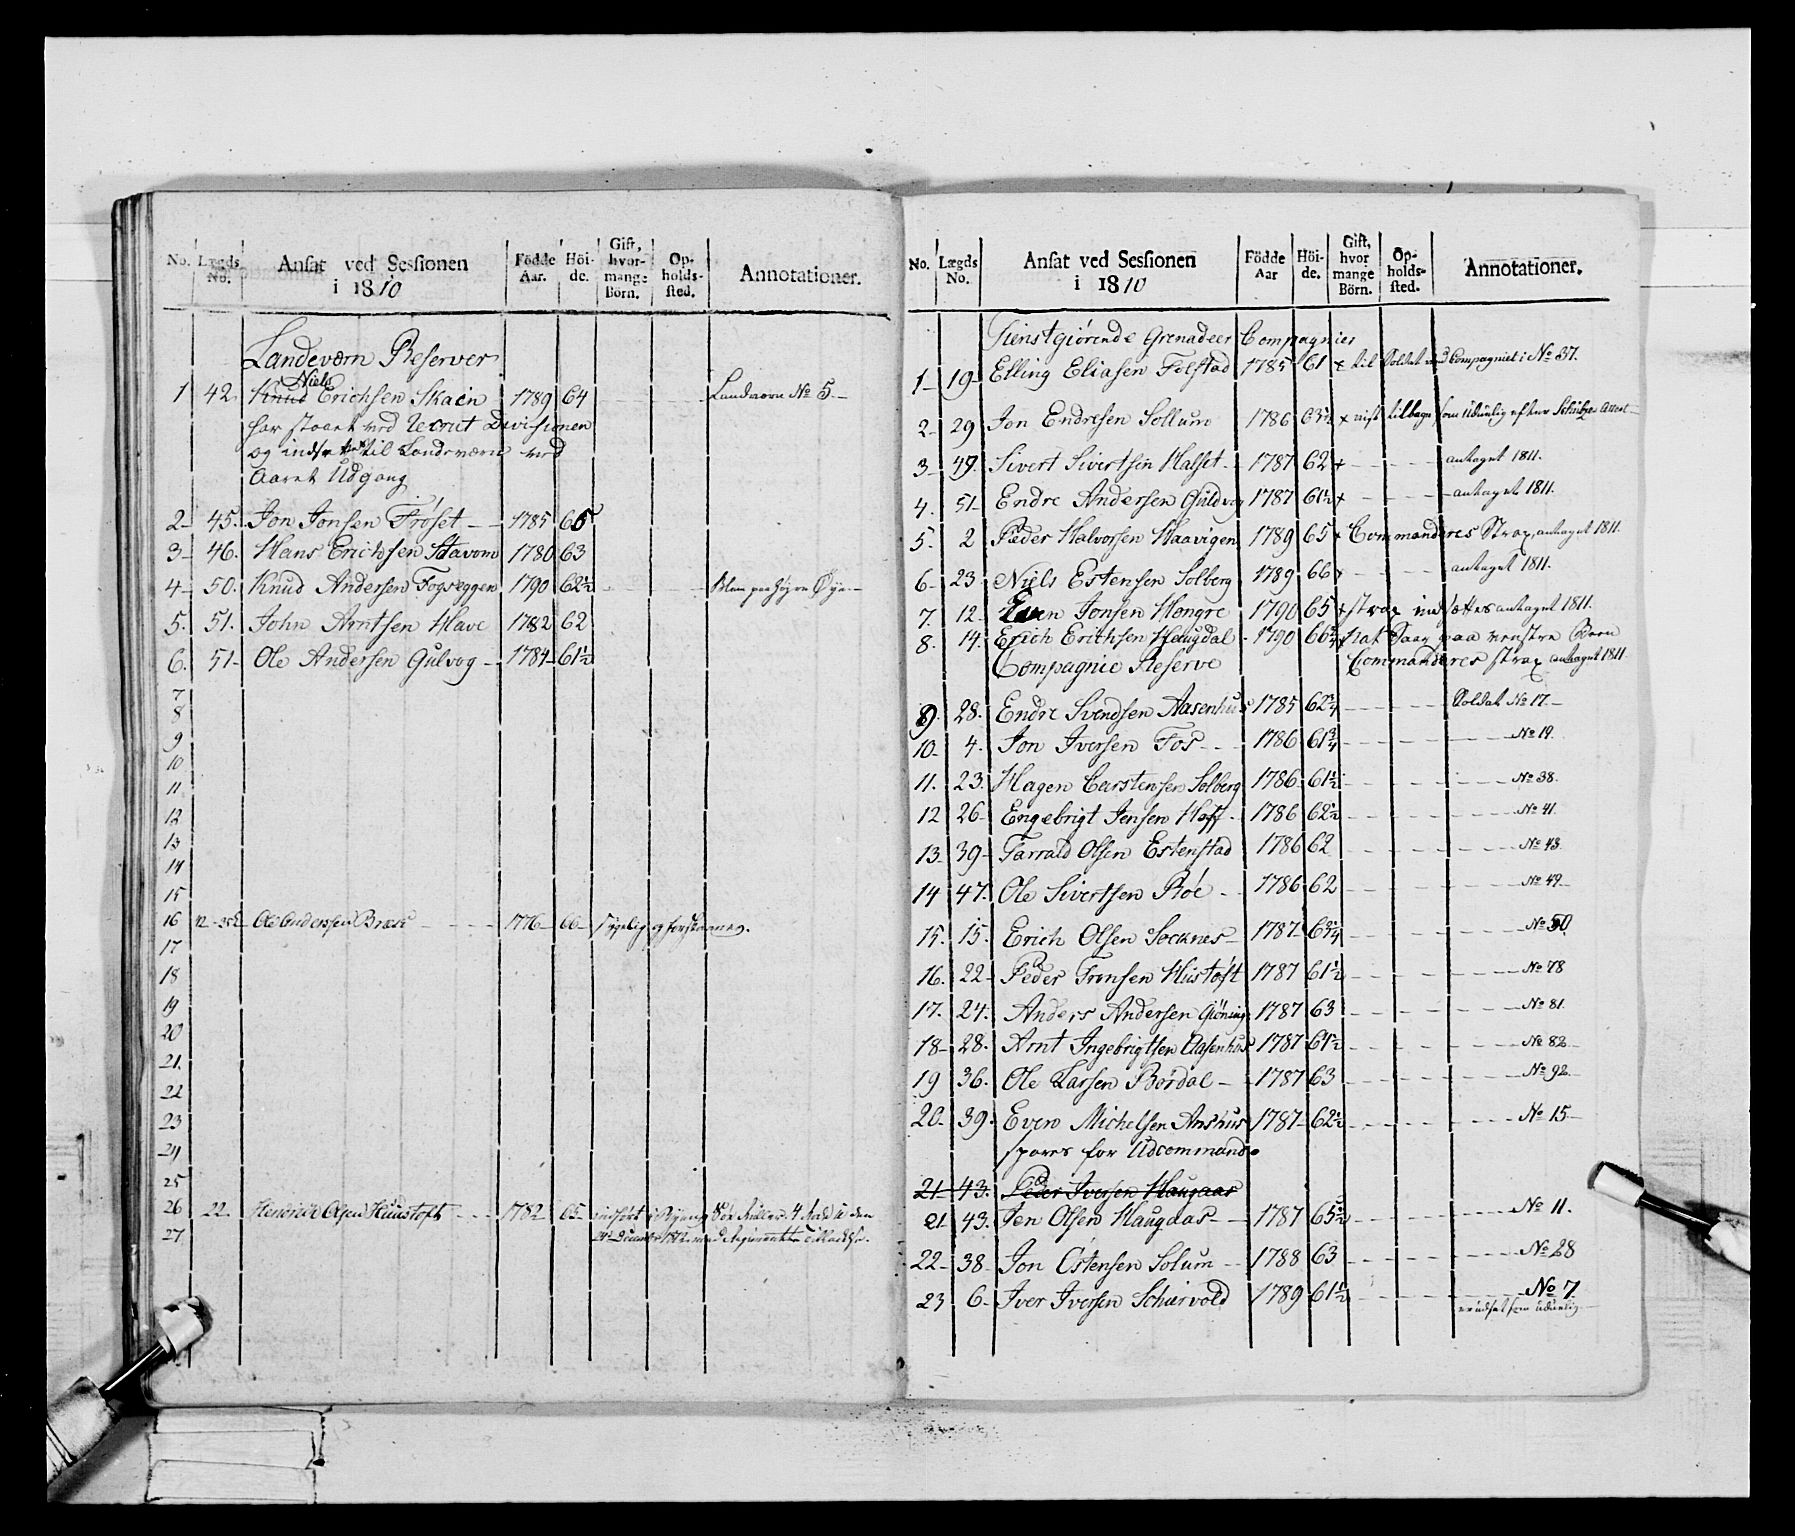 No. Lægds No. Ansat ved Sessionen i 1810 Födde Aar. Höi- de. Gift, hvor- mange Börn. Op- holds- sted. Annotationer.
Landeværn Reserver
Niels
1 42. Knud Erichsen Skaein 1789 64 Landværn No 5.
har staaet ved Recrut Divisionen
og indsættes til Landeværn ved
Aaret Udgang
2 45. Jon Jonsen Frøset 1785 65
3 46. Hans Erichsen Stavom 1780 63
4 50. Knud Andersen Fogseggen 1790 62½ Blem paa høyre Øye
5. 51. John Arntsen Have 1782 62
6. 51 Ole Andersen Gulvog 1784 61½
7
8
9
10
11
12
13
14
15
16 Ole Anderssen 1776 66 Sygelig og
17
18
19
20
21.
22
23
24
25
26 22 Hendrik Olsen Huustoft 1782 65 indført i
27
No. Lægds No. Ansat ved Sessionen i 1810 Födde Aar Höi- de. Gift, hvor mange Börn. Op- holds- sted. Annotationer.
Tienstgiörende Grenadeer Compagnier
1 19 Elling Eliasen Folstad 1785 61 x til Soldat ved Compagniet i No 37.
2 29 Jon Endresen Sollum 1786 63½ x vist tilbage som Udünlig efter Schützes Attest
3 49 Sivert Sivertsen Halset 1787 62 x antaget 1811.
4. 51 Endre Andersen Guldvog 1787 61½ x antaget 1811.
5. 2 Peder Halvorsen Haavigen 1789 65 x Commanderes Strax, antaget 1811.
6 23 Niels Estensen Solberg 1789 66 x antaget 1811.
7. 12 Even Jonsen Hongre 1790 65 x strax indsættes antaget 1811.
8. 14. Erich Erichsen Haugdal 1790 66¾ x hat Saar paa venstre Been
Compagnie Reserve Commanderes strax antaget 1811
9. 28. Endre Svendsen Aasenhus 1785 62¾ Soldat No 17.
10 4. Jon Iversen Fos 1786 61¾ No 19
11. 23. Hagen Carstensen Solberg 1786 61½ No 38.
12 26 Engebrigt Jensen Hoff 1786 62½ No 41.
13 39 Tarrald Olsen Estenstad 1786 62 No 43.
14 47. Ole Sivertsen Röe 1786 62 No 49
15. 15. Erich Olsen Socknes 1787 63¾ No 50.
16. 22 Peder Tronsen Hüstøft 1787 61½ No 78
17. 24. Anders Andersen Giöning 1787 63 No 81.
18 28. Arnt Ingebrigtsen Aasenhus 1787 61½ No 82
19 36. Ole Larsen Bordal 1787 63 No 92.
20. 39. Even Michelsen Aashus 1787 62½ No 15
spares for Udcommando
21 43. Peder Iversen Haugaas
21 43. Jen Olsen Haugaas 1787 65½ No 11.
22 38 Jon Östensen Solum 1788 63 No 28
23 6 Iver Iversen Schiervold 1789 61½ No 7
er udsat som uduelig